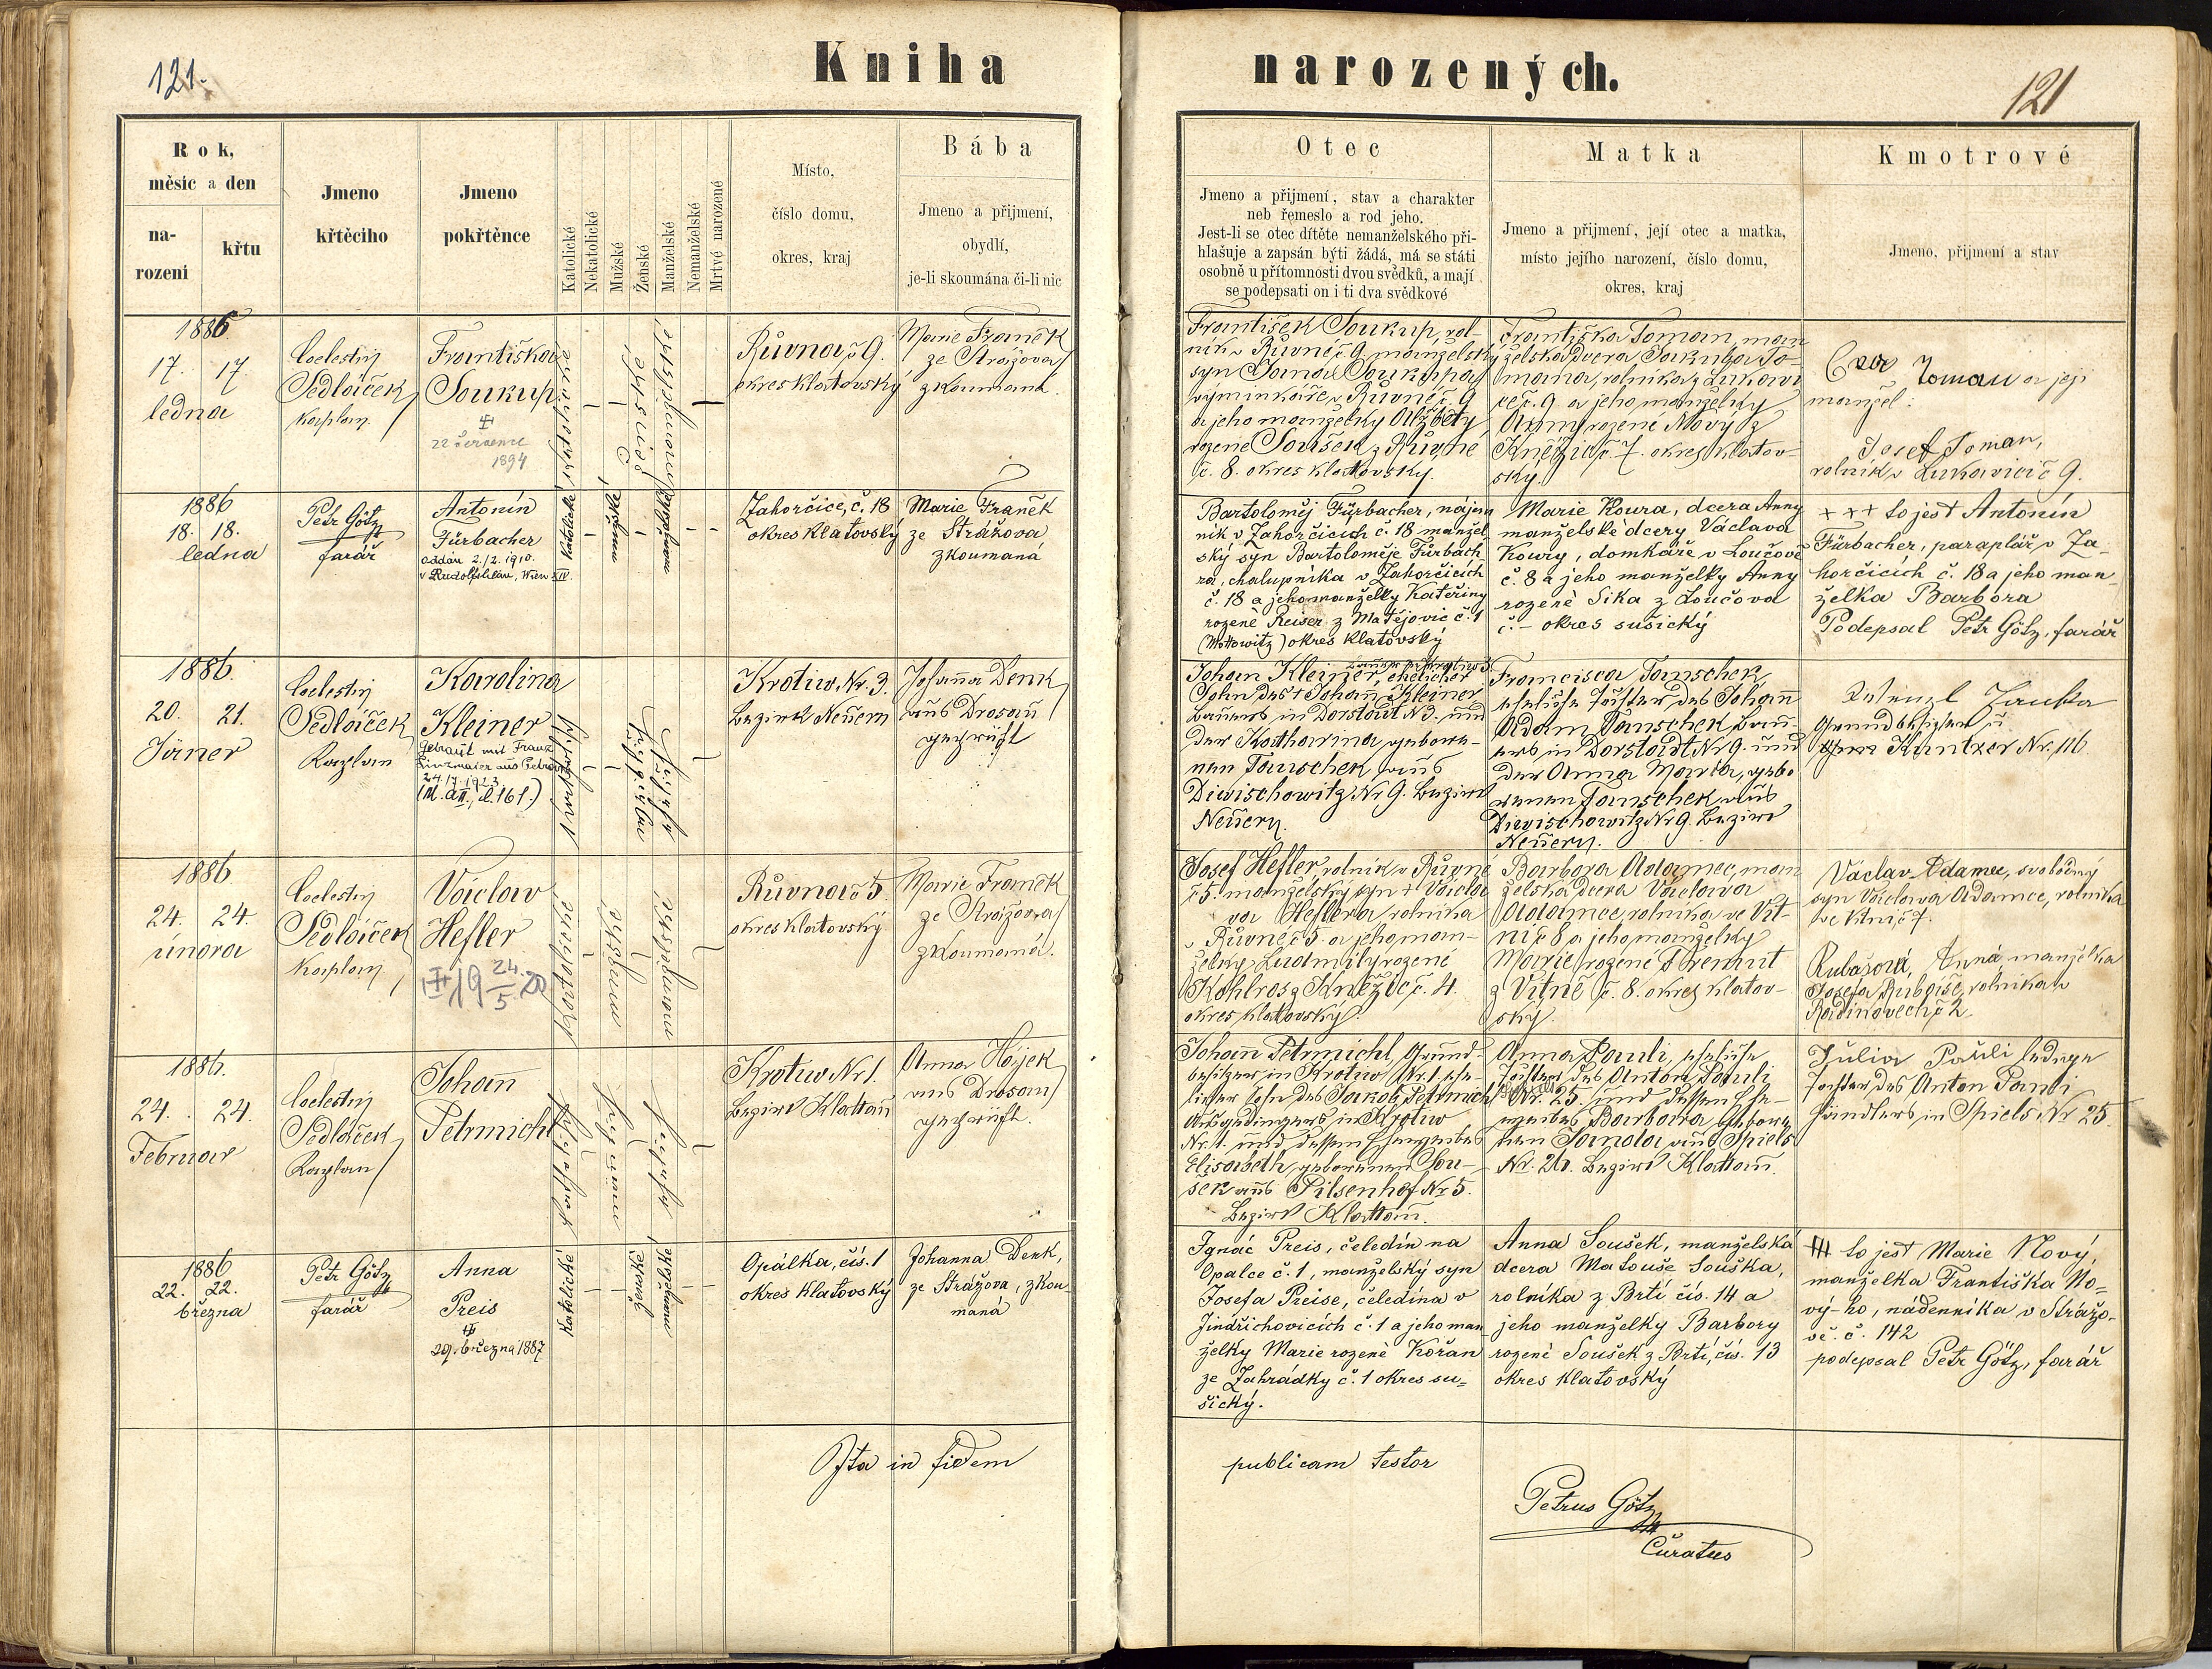 121.
Kniha
narozených.
121
Rok,
měsíc a den
na-
rozeni
křtu
Jmeno
křtěciho
Jmeno
pokřtěnce
Katolické
Nekatolické
Mužské
Ženské
Manželské
Nemanželské
Mrtvé narozené
Místo,
číslo domu,
okres, kraj
Bába
Jmeno a přijmení,
obydlí,
je-li skoumána či-li nic
Otec
Jmeno a přijmení, stav a charakter
neb řemeslo a rod jeho.
Jest-li se otec dítěte nemanželského při-
hlašuje a zapsán býti žádá, má se státi
osobně u přítomnosti dvou svědků, a mají
se podepsati on i ti dva svědkové
Matka
Jmeno a přijmení, její otec a matka,
místo jejího narození, číslo domu,
okres, kraj
Kmotrové
Jmeno, přijmení a stav
1886
17. 17.
ledna
Coelestin
Sedláček
Kaplan
Františka
Soukup
22 července
1894
Růvna č 9.
okres klatovský
Marie Franěk
ze Strážova
zkoumaná.
František Soukup, rol-
ník v Růvné č 9 manželský
syn Soukupa
výminkáře v Růvné č. 9
a jeho manželky Alžběty
rozené Soušek z Růvné
č. 8. okres klattovský.
Františka Toman, man
želská dcera Jakuba To-
mana, rolníka z Lukavi
ce č. 9 a jeho manželky
Anny rozené Nový z
Kněžic č. 7. okres klatov-
ský.
Toman a její
manžel:
Josef Toman,
rolník v Lukavici č 9.
1886
18. 18.
ledna
Petr Götz
farář
Antonín
Fürbacher
oddán 2./2. 1910.
v Rudolfsheim, Wien XIV.
Katolické
Zahorčice, č. 18
okres Klatovský
Marie Franěk
ze Strážova
zkoumaná
Bartoloměj Fürbacher, nájem
ník v Zahorčicích č. 18 manžel
ský syn Bartoloměje Fürbach
ra, chalupníka v Zahorčicích
č. 18 a jeho manželky Kateřiny
rozené Reiser z Matějovic č. 1
(Mottowitz) okres Klatovský
Marie Koura, dcera Anny
manželské dcery Václava
Koury, domkáře v Loučově
č. 8 a jeho manželky Anny
rozené Sika z Loučova
č. – okres sušický
+++ to jest Antonín
Fürbacher, paraplář v Za-
horčicích č. 18 a jeho man-
želka Barbora
Podepsal Petr Götz, farář
1886.
20. 21.
Jäner
Coelestin
Sedláček
Kaplan
Karolina
Kleiner
Getraut mit Franz
24./7. 1913
Krotiw Nr. 3.
Bezirk Neuern
Johanna Denk
aus Drosau
geprüft
Johann Kleiner, ehelicher
Sohn des † Johann Kleiner
Bauers in Dorstadt N 3. und
der Katharina gebore-
nen Tanschek aus
Diwischowitz Nr 9. Bezirk
Neuern.
Francisca Tanschek
eheliche Tochter des Johann
Adam Tanschek Bau-
ers in Dorstadt Nr 9. und
der Anna Maria, gebo
renen Tanschek aus
Diwischowitz Nr 9. Bezirk
Neuern.
Wenzl Jauka
Grundbesitzer
Kuntzer Nr. 116
1886.
24. 24.
února
Coelestin
Sedláček
Kaplan
Václav
Hefler
19 24./5. 20
Růvna č 5.
okres klatovský
Marie Franěk
ze Strážova
zkoumaná.
Josef Hefler, rolník v Růvné
č 5. manželský syn † Václa
va Heflera, rolníka
v Růvné č 5. a jeho man-
želky Ludmily rozené
Kohlros z Kněžic č. 4.
okres klattovský.
Barbora Adamec, man
želská dcera Václava
Adamce, rolníka ve Vít-
ni č 8 a jeho manželky
Marie rozené Tremut
z Vítně č. 8. okres klatov-
ský.
Václav Adamec, svobodný
syn Václava Adamce, rolníka
ve Vítni č 7.
Rubášová, Anna manželka
Josefa Rubáše, rolníka v
Radinovech č 2
1886.
24. 24.
Februar
Coelestin
Sedláček
Kaplan
Johan
Petrmichl
Krotiw Nr 1.
Bezirk Klattau
Anna Hájek
aus Drosau
geprüft.
Johann Petrmichl, Grund-
besitzer in Krotiw Nr. 1. ehe
licher Sohn des Jakob Petrmichl
Ausgedingers in Krotiw
Nr. 1. und dessen Eheweibes
Elisabeth, geborenen Sou-
šek aus Pilsenhof Nr 5.
Bezirk Klattau.
Anna Pauli, eheliche
Tochter des Anton Pauli
Nr. 25. und dessen Ehe-
weibes Barbara gebore
nen Janola aus Spiels
Nr. 26. Bezirk Klattau.
Julia Pauli ledige
Tochter des Anton Pauli
Händlers in Spiels Nr 25.
1886
22. 22.
března
Petr Götz
farář
Anna
Preis
29. března 1887
Katolické
Opálka, čís. 1
okres Klatovský
Johanna Denk,
ze Strážova, zkou
maná
Ignác Preis, čeledín na
Opalce č. 1, manželský syn
Josefa Preise, čeledína v
Jindřichovicích č. 1 a jeho man
želky Marie rozené Kořan
ze Zahrádky č. 1 okres su-
šický.
Anna Soušek, manželská
dcera Matouše Souška,
rolníka z Brtí čís. 14 a
jeho manželky Barbory
rozené Soušek z Brtí, čís. 13
okres klatovský
+++ to jest Marie Nový,
manželka Františka No-
vý-ho, nádenníka v Strážo-
vě. č. 142
podepsal Petr Götz, farář
Ita in fidem
publicam testor
Petrus Götz
Curatus